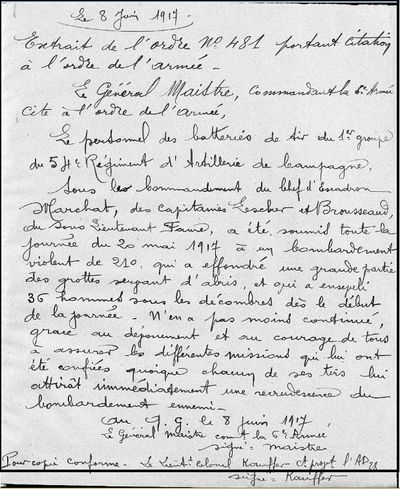 Le 8 Juin 1917.-
Extrait de l'ordre No 481 portant citation
à l'ordre de l'armée -
Le Général Maistre, Commandant la 6e Armée
cite à l'ordre de l'armée,
Le personnel des batteries de tir du 1er groupe
du 54e Régiment d'Artillerie de Campagne,
Sous les Commandement du Chef d'Escadron
Marchat, des capitaines Lescher et Brousseaud,
du Sous Lieutenant Faure, a été soumis toute la
journée du 20 mai 1917 à un bombardement
violent de 210 qui a effondré une grande partie
des grottes servant d'abris, et qui a enseveli
36 hommes sous les décombres dès le début
de la journée - N'en a pas moins continué,
grace au dévouement et au courage de tous
à assurer les différentes missions qui lui ont
été confiées quoique chacun de ses tirs lui
attirât immédiatement une recrudescence du
bombardement ennemi -
Au Q. G. le 8 juin 1917
Le Général Maistre comt la 6e Armée
signé = Maistre
Pour copie conforme - Le Lieutt colonel Kauffer ct provt l'AD
signé = Kauffer